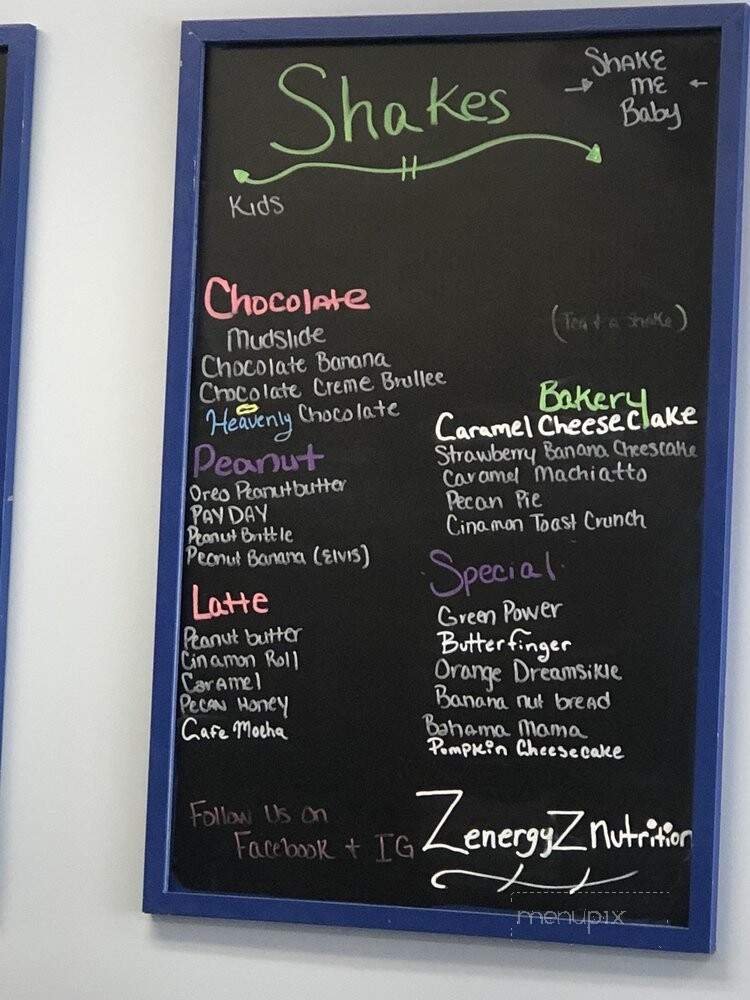 Shakes
SHAKE
ME
Baby
Kids
Chocolate
Mudslide
Chocolate Banana
Chocolate Creme Brullee
Heavenly Chocolate
Peanut
Oreo Peanutbutter
PAYDAY
Peanut Brittle
Peanut Banana (ELVIS)
Latte
Peanut butter
Cinamon Roll
Caramel
Pecan Honey
Cafe Mocha
(Tea + a shake)
Bakery
Caramel Cheese Cake
Strawberry Banana Cheescake
Caramel Machiatto
Pecan Pie
Cinamon Toast Crunch
Special
Green Power
Butterfinger
Orange Dreamsikle
Banana nut bread
Bahama Mama
Pumpkin Cheesecake
Follow Us on
Facebook + IG
ZenergyZ nutrition
menupix